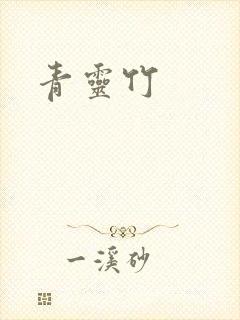 青靈竹
一溪砂